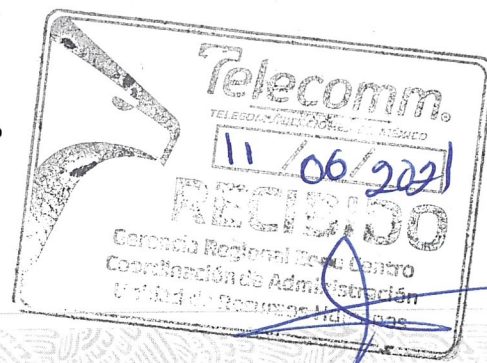 Telecomm.
TELECOMUNICACIONES DE MÉXICO
11 / 06 / 2021
RECIBIDO
Gerencia Regional Centro
Coordinación de Administración
Unidad de Recursos Humanos